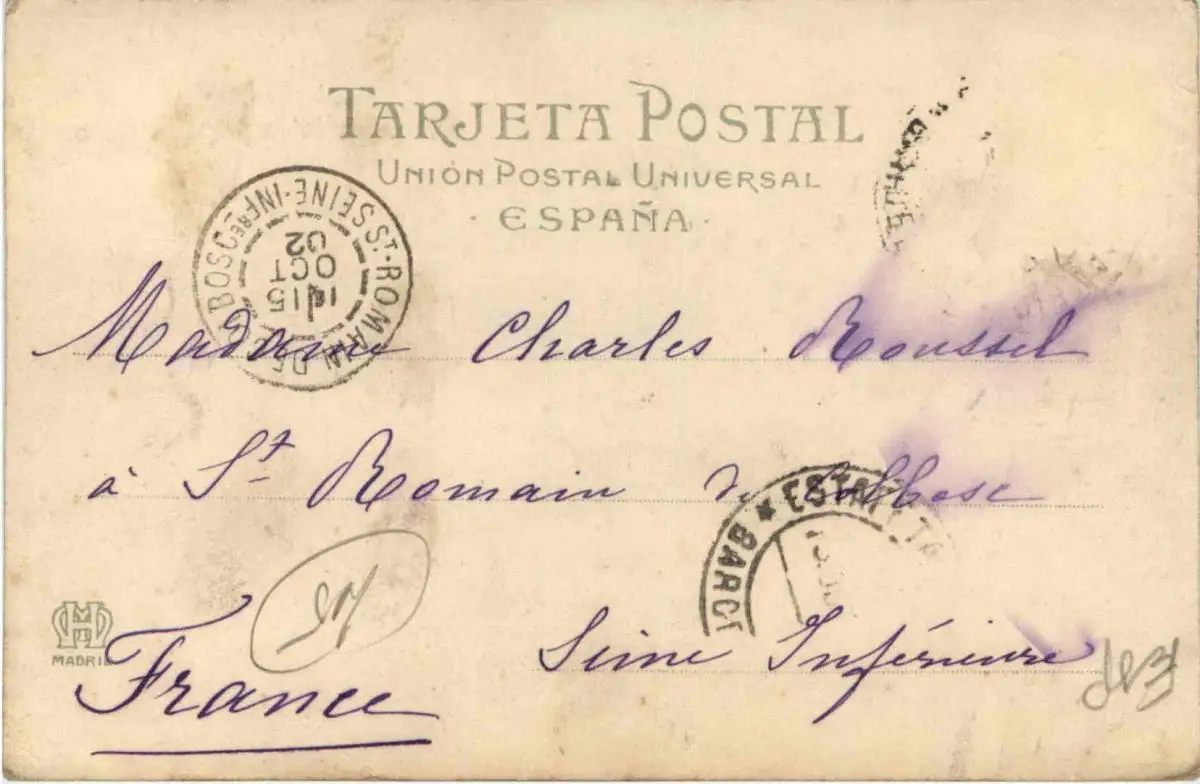 TARJETA POSTAL
UNIÓN POSTAL UNIVERSAL
· ESPAÑA ·
ST-ROMAIN-DE BOSC SEINE-INFRE
15
OCT
02
Madame Charles Roussel
à St Romain de Colbosc
BARC * ESTAF
Seine Inférieure
MADRID
France